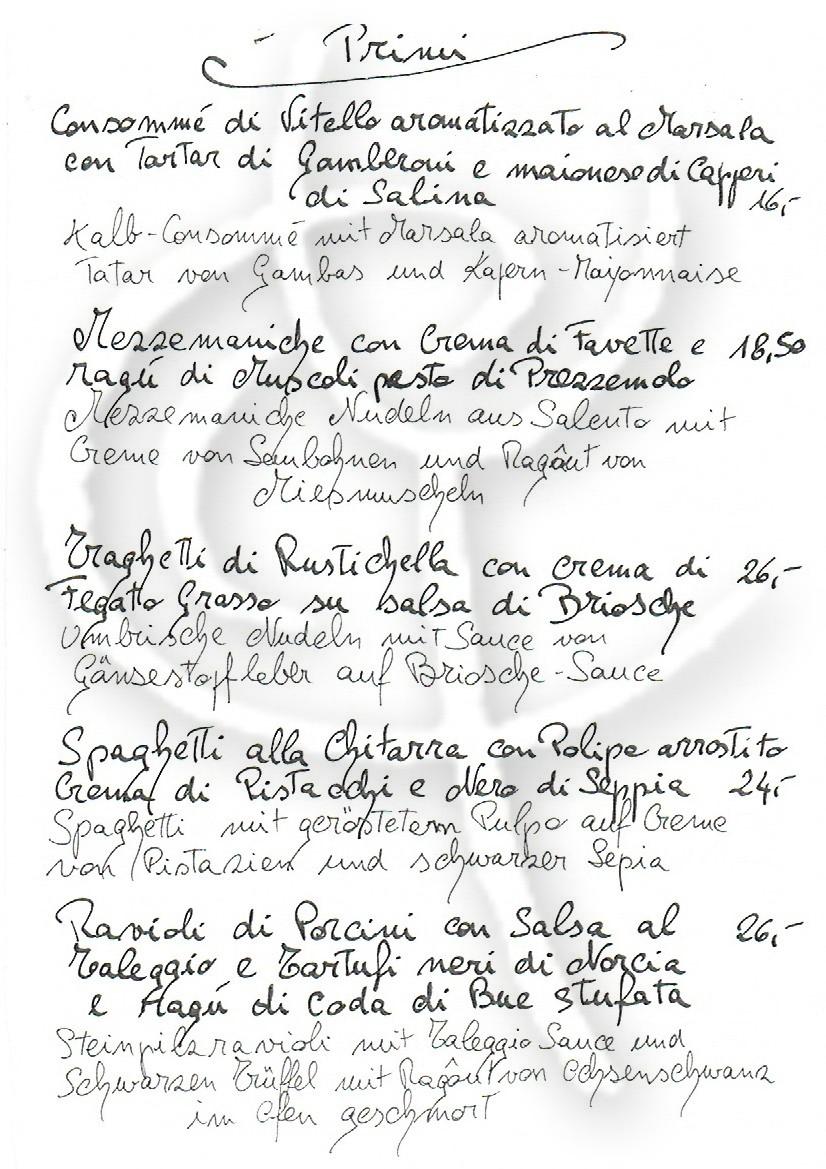 Primi
Consommé di Vitello aromatizzato al Marsala
con Tartar di Gamberoni e maionese di Capperi
di Salina 16,-
Kalb-Consommé mit Marsala aromatisiert
Tatar von Gambas und Kapern-Mayonnaise
Mezzemaniche con Crema di Favette e 18,50
ragú di Muscoli pesto di Prezzemolo
Mezzemaniche Nudeln aus Salento mit
Creme von Saubohnen und Ragâut von
Miesmuscheln
Traghetti di Rustichella con crema di 26,-
Fegatto Grasso su salsa di Briosche
Umbrische Nudeln mit Sauce von
Gänsestopfleber auf Briosche-Sauce
Spaghetti alla Chitarra con Polipo arrostito
Crema di Pistacchi e Nero di Seppia 24,-
Spaghetti mit geröstetem Pulpo auf Creme
von Pistazien und schwarzer Sepia
Ravioli di Porcini con Salsa al 26,-
Taleggio e Tartufi neri di Norcia
e Ragú di Coda di Bue stufata
Steinpilzravioli mit Taleggio Sauce und
Schwarzen Trüffel mit Ragâut von Ochsenschwanz
im Ofen geschmort